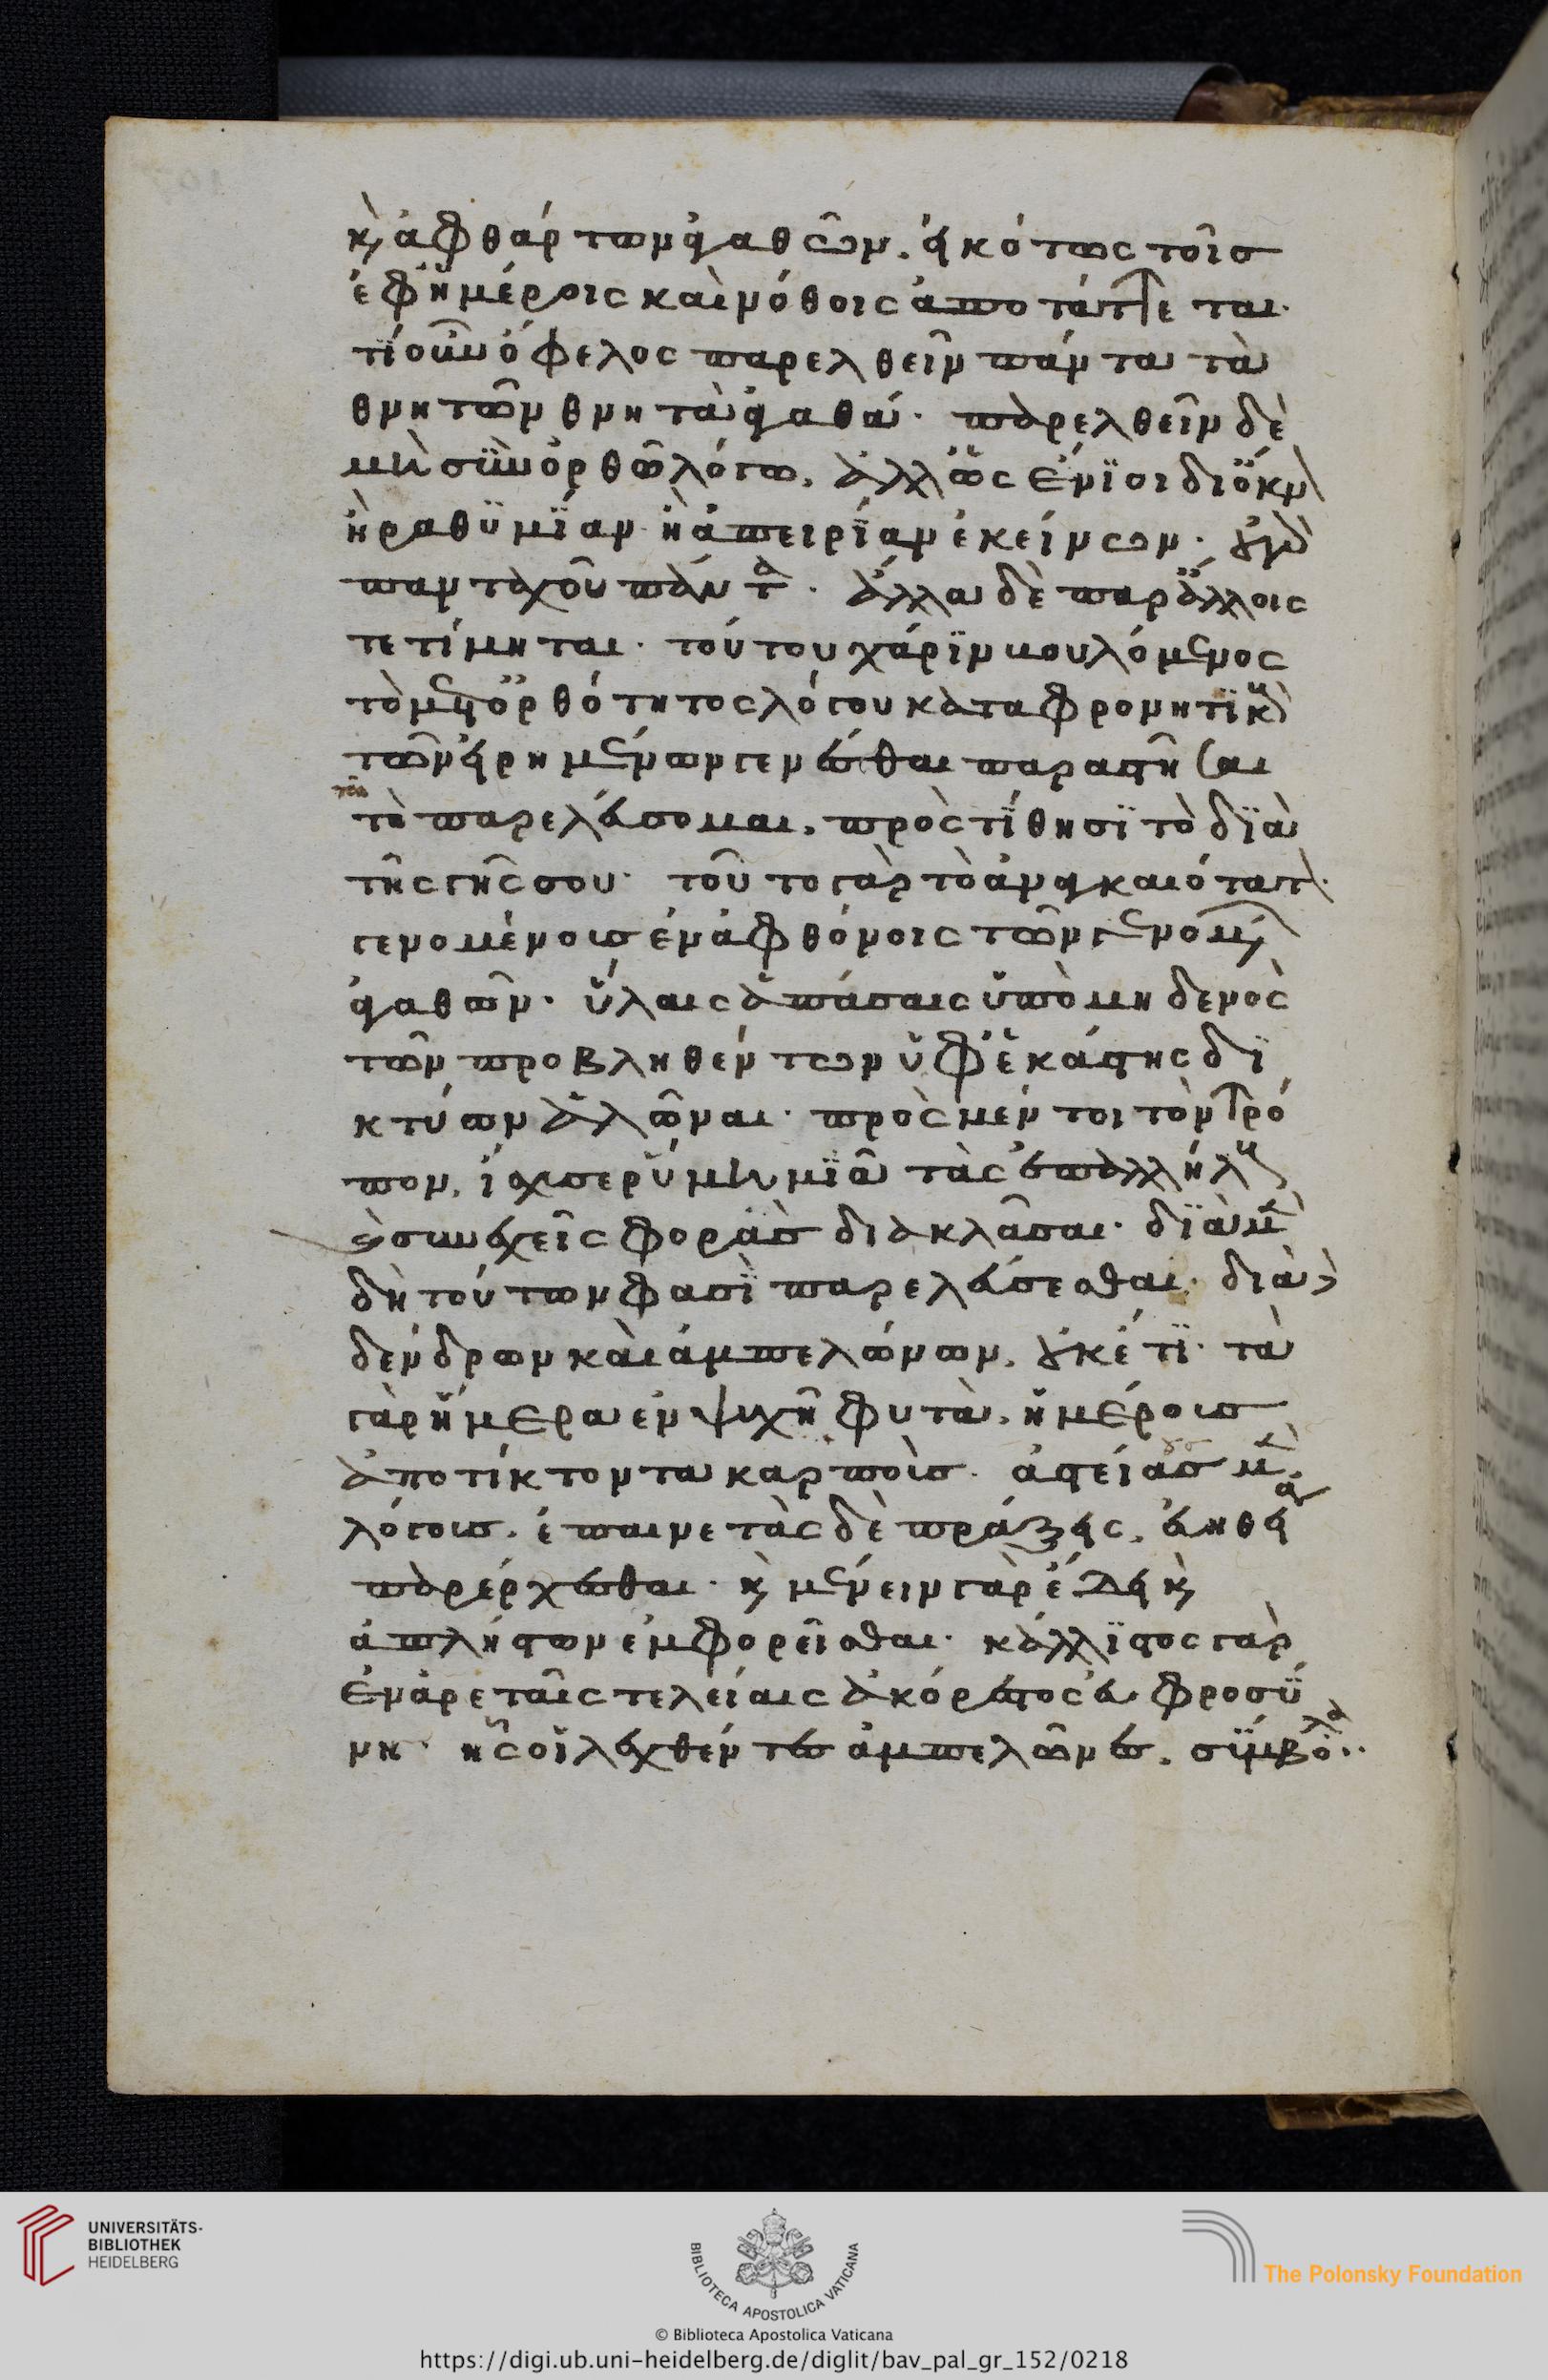 κ ἀφθάρτων ἀγαθῶν. εἰκότως τοῖσ
ἐφημέροις καὶ νόθοις ἀποτάττεται.
τί οὖν ὄφελος παρελθεῖν πάντα τὰ
θνητῶν θνητὰ ἀγαθά. παρελθεῖν δὲ
μὴ σὺν ὀρθῶ λόγω. ἀλλ' ὡς ἔνιοι δι' ὄκνον
ἢ ραθυμίαν ἢ ἀπειρίαν ἐκείνων. οὐ γὰρ
πανταχοῦ πάντα. ἄλλα δὲ παρ' ἄλλοις
τετίμηται. τούτου χάριν βουλόμενος
τὸ μετ' ὀρθότητος λόγου καταφρονητικὸν
τῶν εἰρημένων γενέσθαι παραστῆσαι
τῶ παρελεύσομαι, προςτίθησι τὸ διὰ
τῆς γῆς σου. τοῦτο γὰρ τὸ ἀναγκαιότατον.
γενομένοισ ἐν ἀφθόνοις τῶν γενομένων
ἀγαθῶν. ὕλαις ἁπάσαις ὑπὸ μηδενὸς
τῶν προβληθέντων ὑφ' ἑκάστης δι
κτύων ἁλῶναι. πρὸς μέντοι τὸν τρό
πον. ἰσχυσε ρύμη μιᾶ τὰς ἐπαλλήλους
συνεχεῖς φορὰσ διακλᾶσαι. διὰ μὲν
δὴ τούτων φασὶ παρελεύσεσθαι. διὰ
δένδρων καὶ ἀμπελώνων, οὐκέτι. τὰ
γὰρ ἥμερα ἐν ψυχῆ φυτὰ. ἡμέροισ
ἀποτίκτοντα καρποὺσ. ἀστείουσ μὲν
λόγουσ. ἐπαινετὰς δὲ πράξεις, εὐήθεια
παρέρχεσθαι. κ μένειν γὰρ ἔδει κ
ἀπλήστων ἐμφορεῖσθαι. κάλλιστος γὰρ
ἐν ἀρεταῖς τελείαις ἀκόρεστος εὐφροσύ
νη. ἧς οἱ λεχθέντεσ ἀμπελῶνεσ. σύμβολα..
UNIVERSITÄTS-
BIBLIOTHEK
HEIDELBERG
BIBLIOTECA APOSTOLICA VATICANA
The Polonsky Foundation
© Biblioteca Apostolica Vaticana
https://digi.ub.uni-heidelberg.de/diglit/bav_pal_gr_152/0218